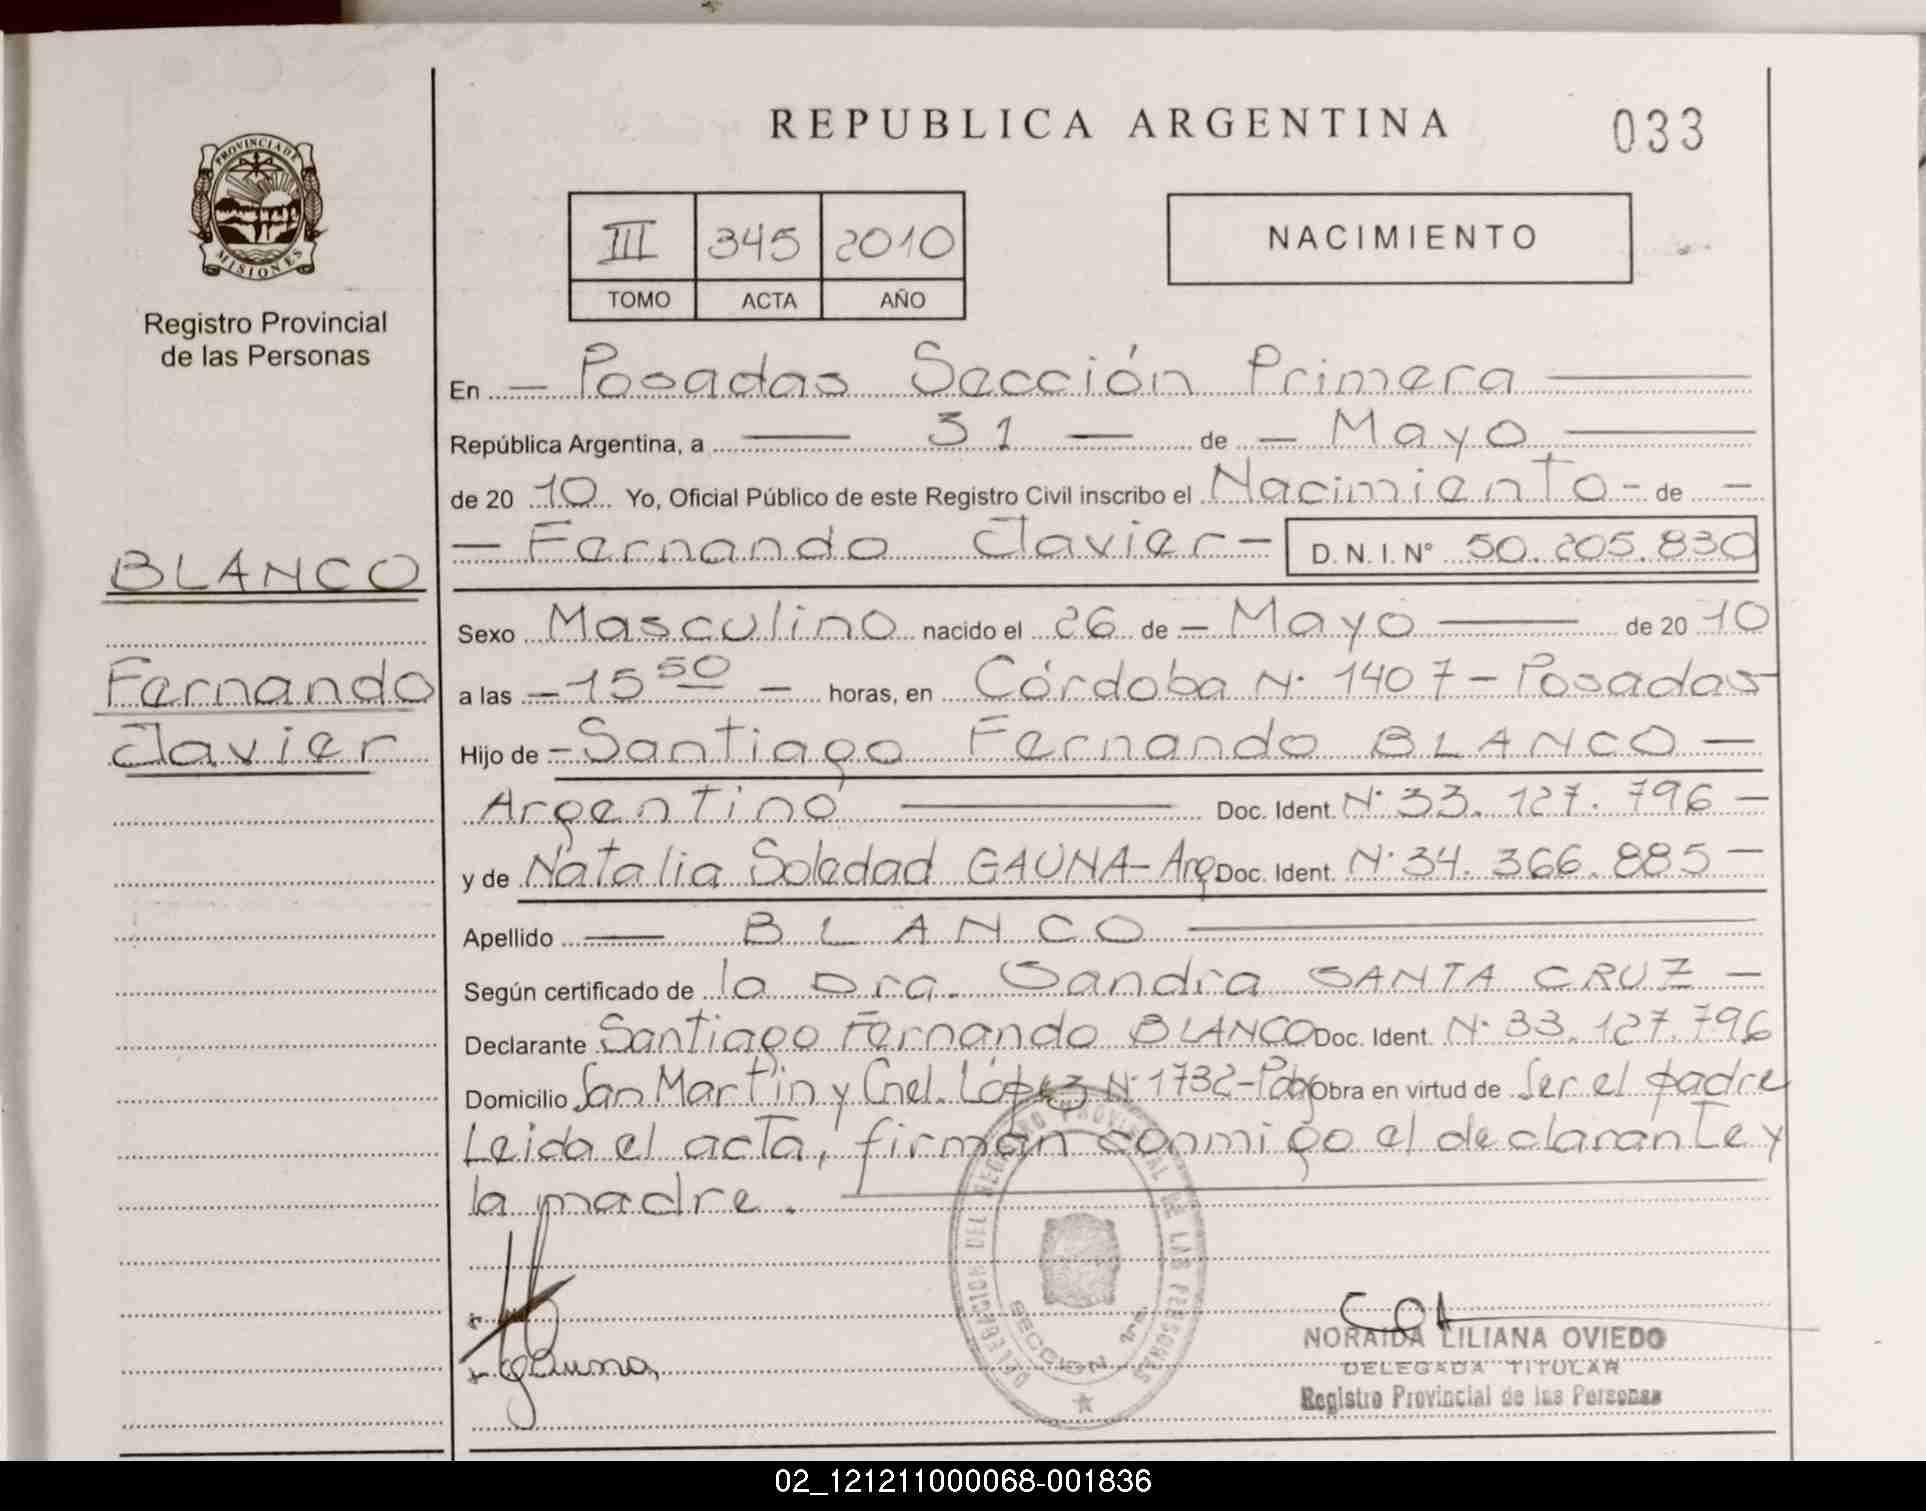 REPUBLICA ARGENTINA
033
PROVINCIA DE
MISIONES
Registro Provincial
de las Personas
III 345 2010
TOMO ACTA AÑO
NACIMIENTO
En — Posadas Sección Primera —
República Argentina, a — 31 — de — Mayo —
de 20 10 Yo, Oficial Público de este Registro Civil inscribo el Nacimiento - de —
— Fernando Javier — D. N. I. N° 50.205.830
BLANCO
Fernando
Javier
Sexo Masculino nacido el 26 de — Mayo — de 20 10
a las — 15 50 — horas, en Córdoba N° 1407 - Posadas
Hijo de — Santiago Fernando BLANCO —
Argentino — Doc. Ident. N° 33.127.796 —
y de Natalia Soledad GAUNA - Arg Doc. Ident. N° 34.366.885 —
Apellido — BLANCO —
Según certificado de la Dra. Sandra SANTA CRUZ —
Declarante Santiago Fernando BLANCO Doc. Ident. N° 33.127.796
Domicilio San Martín y Cnel. López N° 1732 - Pdas Obra en virtud de Ser el padre
Leida el acta, firman conmigo el declarante y
la madre.
DELEGACION DEL REGISTRO PROVINCIAL DE LAS PERSONAS
SECCION 1ra.
Gauna
NORAIDA LILIANA OVIEDO
DELEGADA TITULAR
Registro Provincial de las Personas
02_121211000068-001836